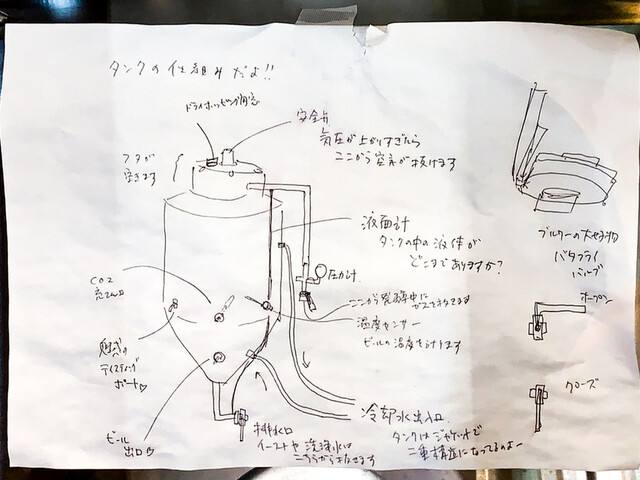 タンクの仕組みだよ!!
ドライホッピング用窓
安全弁
気圧が上がりすぎたら
ここから空気が抜けます
フタが
空きます
液面計
タンクの中の液体が
どこまでありますか?
圧力計
CO2
充てん口
ここから発酵中に
温度センサー
ビールの温度を
魅惑の
テイスティング
ポート♡
ビール
出口♡
排水口
イーストや洗浄水は
こちらから抜きます
冷却水出入口
タンクはジャケットで
二重構造になってるのよー
ブルワーの大好物
バタフライ
バルブ
オープン
クローズ